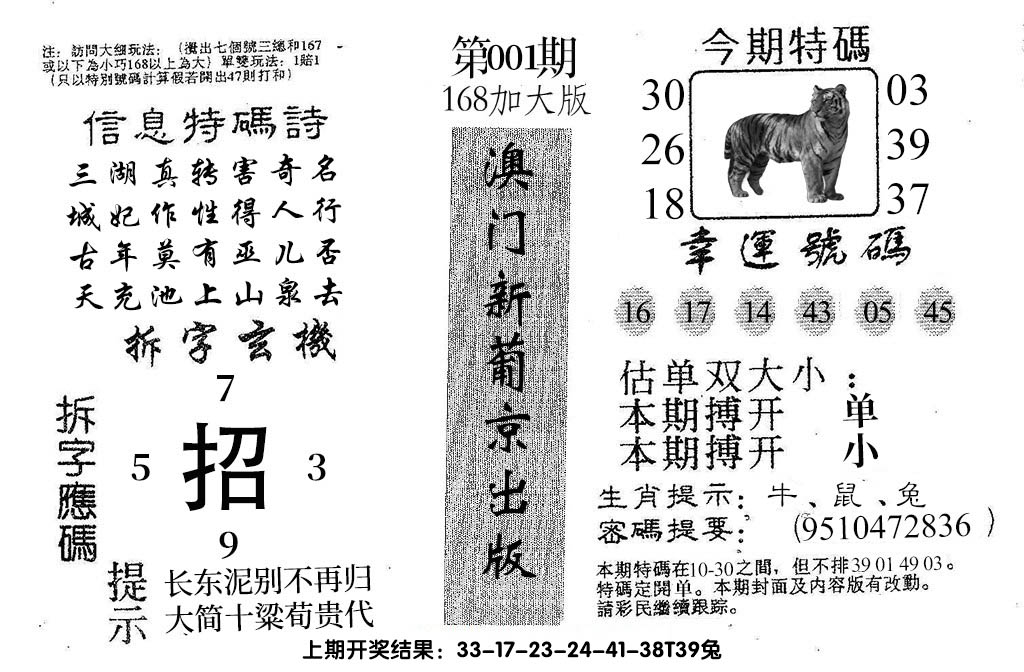 注：訪問大细玩法：（攪出七個號三總和167
或以下為小巧168以上為大）單雙玩法：1賠1
（只以特別號碼計算假若開出47則打和）
信息特碼詩
三湖真转害奇名
城妃作性得人行
古年莫有巫儿否
天充池上山泉去
拆字玄機
拆字應碼
7
5 招 3
9
提示
长东泥别不再归
大简十粱荀贵代
第001期
168加大版
澳门新葡京出版
今期特碼
30 03
26 39
18 37
幸運號碼
16 17 14 43 05 45
估单双大小：
本期搏开 单
本期搏开 小
生肖提示：牛、鼠、兔
密碼提要：（9510472836）
本期特碼在10-30之間，但不排39 01 49 03。
特碼定開单。本期封面及内容版有改動。
請彩民繼續跟踪。
上期开奖结果：33-17-23-24-41-38T39兔